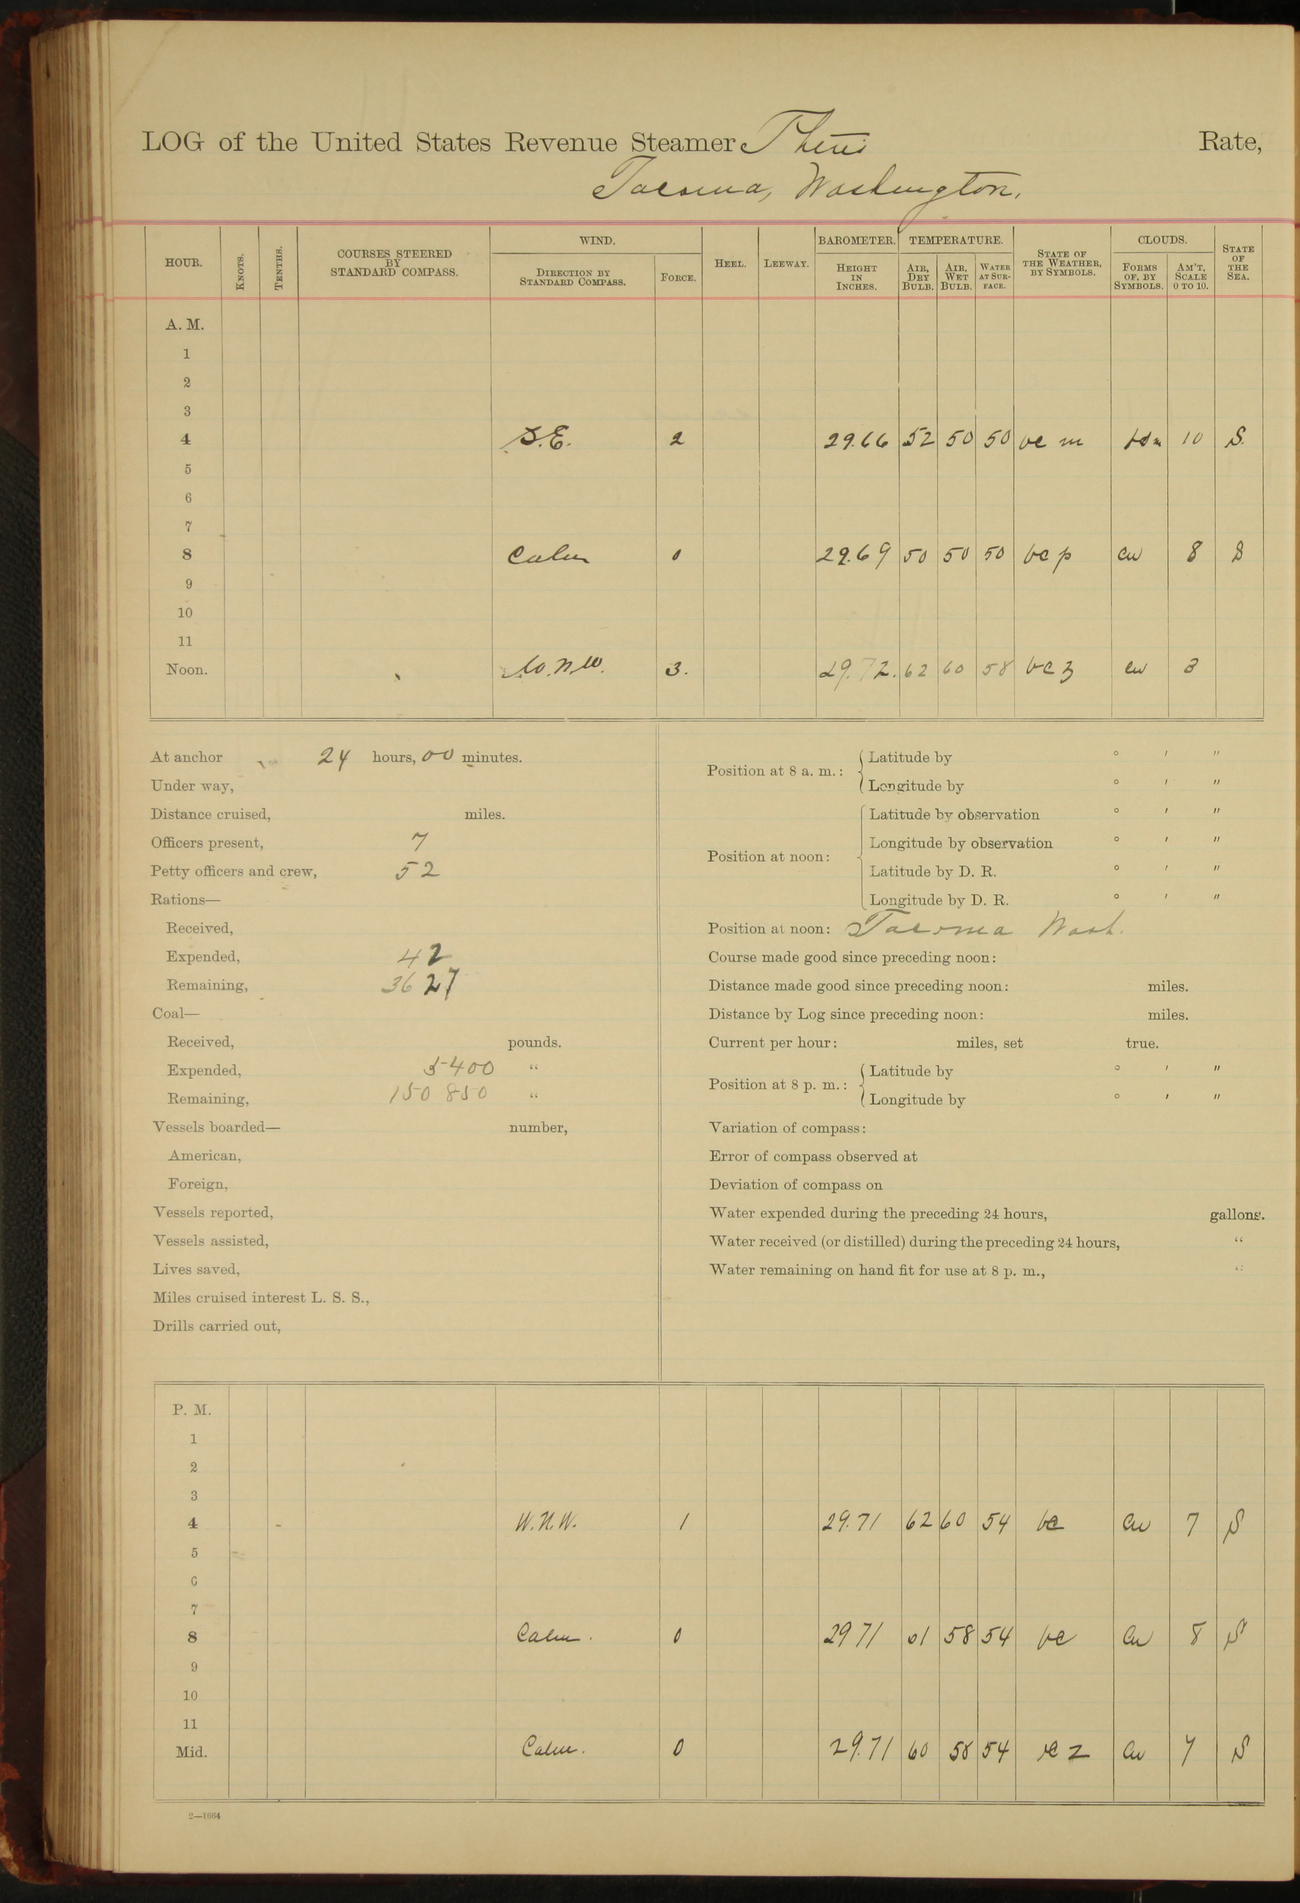 LOG of the United States Revenue Steamer Thetis Rate,
Tacoma, Washington.
HOUR. KNOTS. TENTHS. COURSES STEERED BY STANDARD COMPASS. WIND. DIRECTION BY STANDARD COMPASS. FORCE. HEEL. LEEWAY. BAROMETER. HEIGHT IN INCHES. TEMPERATURE. AIR, DRY BULB. AIR, WET BULB. WATER AT SURFACE. STATE OF THE WEATHER, BY SYMBOLS. CLOUDS. FORMS OF, BY SYMBOLS. AM'T, SCALE 0 TO 10. STATE OF THE SEA.
A. M.
1
2
3
4 S.E. 2 29.66 52 50 50 10 S.
5
6
7
8 Calm 0 29.69 50 50 50 bc p cu 8 S
9
10
11
Noon. W.N.W. 3. 29.72. 62 60 58 bc z cu 3
At anchor 24 hours, 00 minutes.
Under way,
Distance cruised, miles.
Officers present, 7
Petty officers and crew, 52
Rations—
Received,
Expended, 42
Remaining, 3627
Coal—
Received, pounds.
Expended, 5400 "
Remaining, 150 850 "
Vessels boarded— number,
American,
Foreign,
Vessels reported,
Vessels assisted,
Lives saved,
Miles cruised interest L. S. S.,
Drills carried out,
Position at 8 a. m.: Latitude by ° ′ ″
Longitude by ° ′ ″
Position at noon: Latitude by observation ° ′ ″
Longitude by observation ° ′ ″
Latitude by D. R. ° ′ ″
Longitude by D. R. ° ′ ″
Position at noon: Tacoma Wash.
Course made good since preceding noon:
Distance made good since preceding noon: miles.
Distance by Log since preceding noon: miles.
Current per hour: miles, set true.
Position at 8 p. m.: Latitude by ° ′ ″
Longitude by ° ′ ″
Variation of compass:
Error of compass observed at
Deviation of compass on
Water expended during the preceding 24 hours, gallons.
Water received (or distilled) during the preceding 24 hours, "
Water remaining on hand fit for use at 8 p. m., "
P. M.
1
2
3
4 W.N.W. 1 29.71 62 60 54 bc Cu 7 S
5
6
7
8 Calm. 0 29 71 61 58 54 bc Cu 8 S
9
10
11
Mid. Calm. 0 29.71 60 58 54 Cu 7 S
2—1664